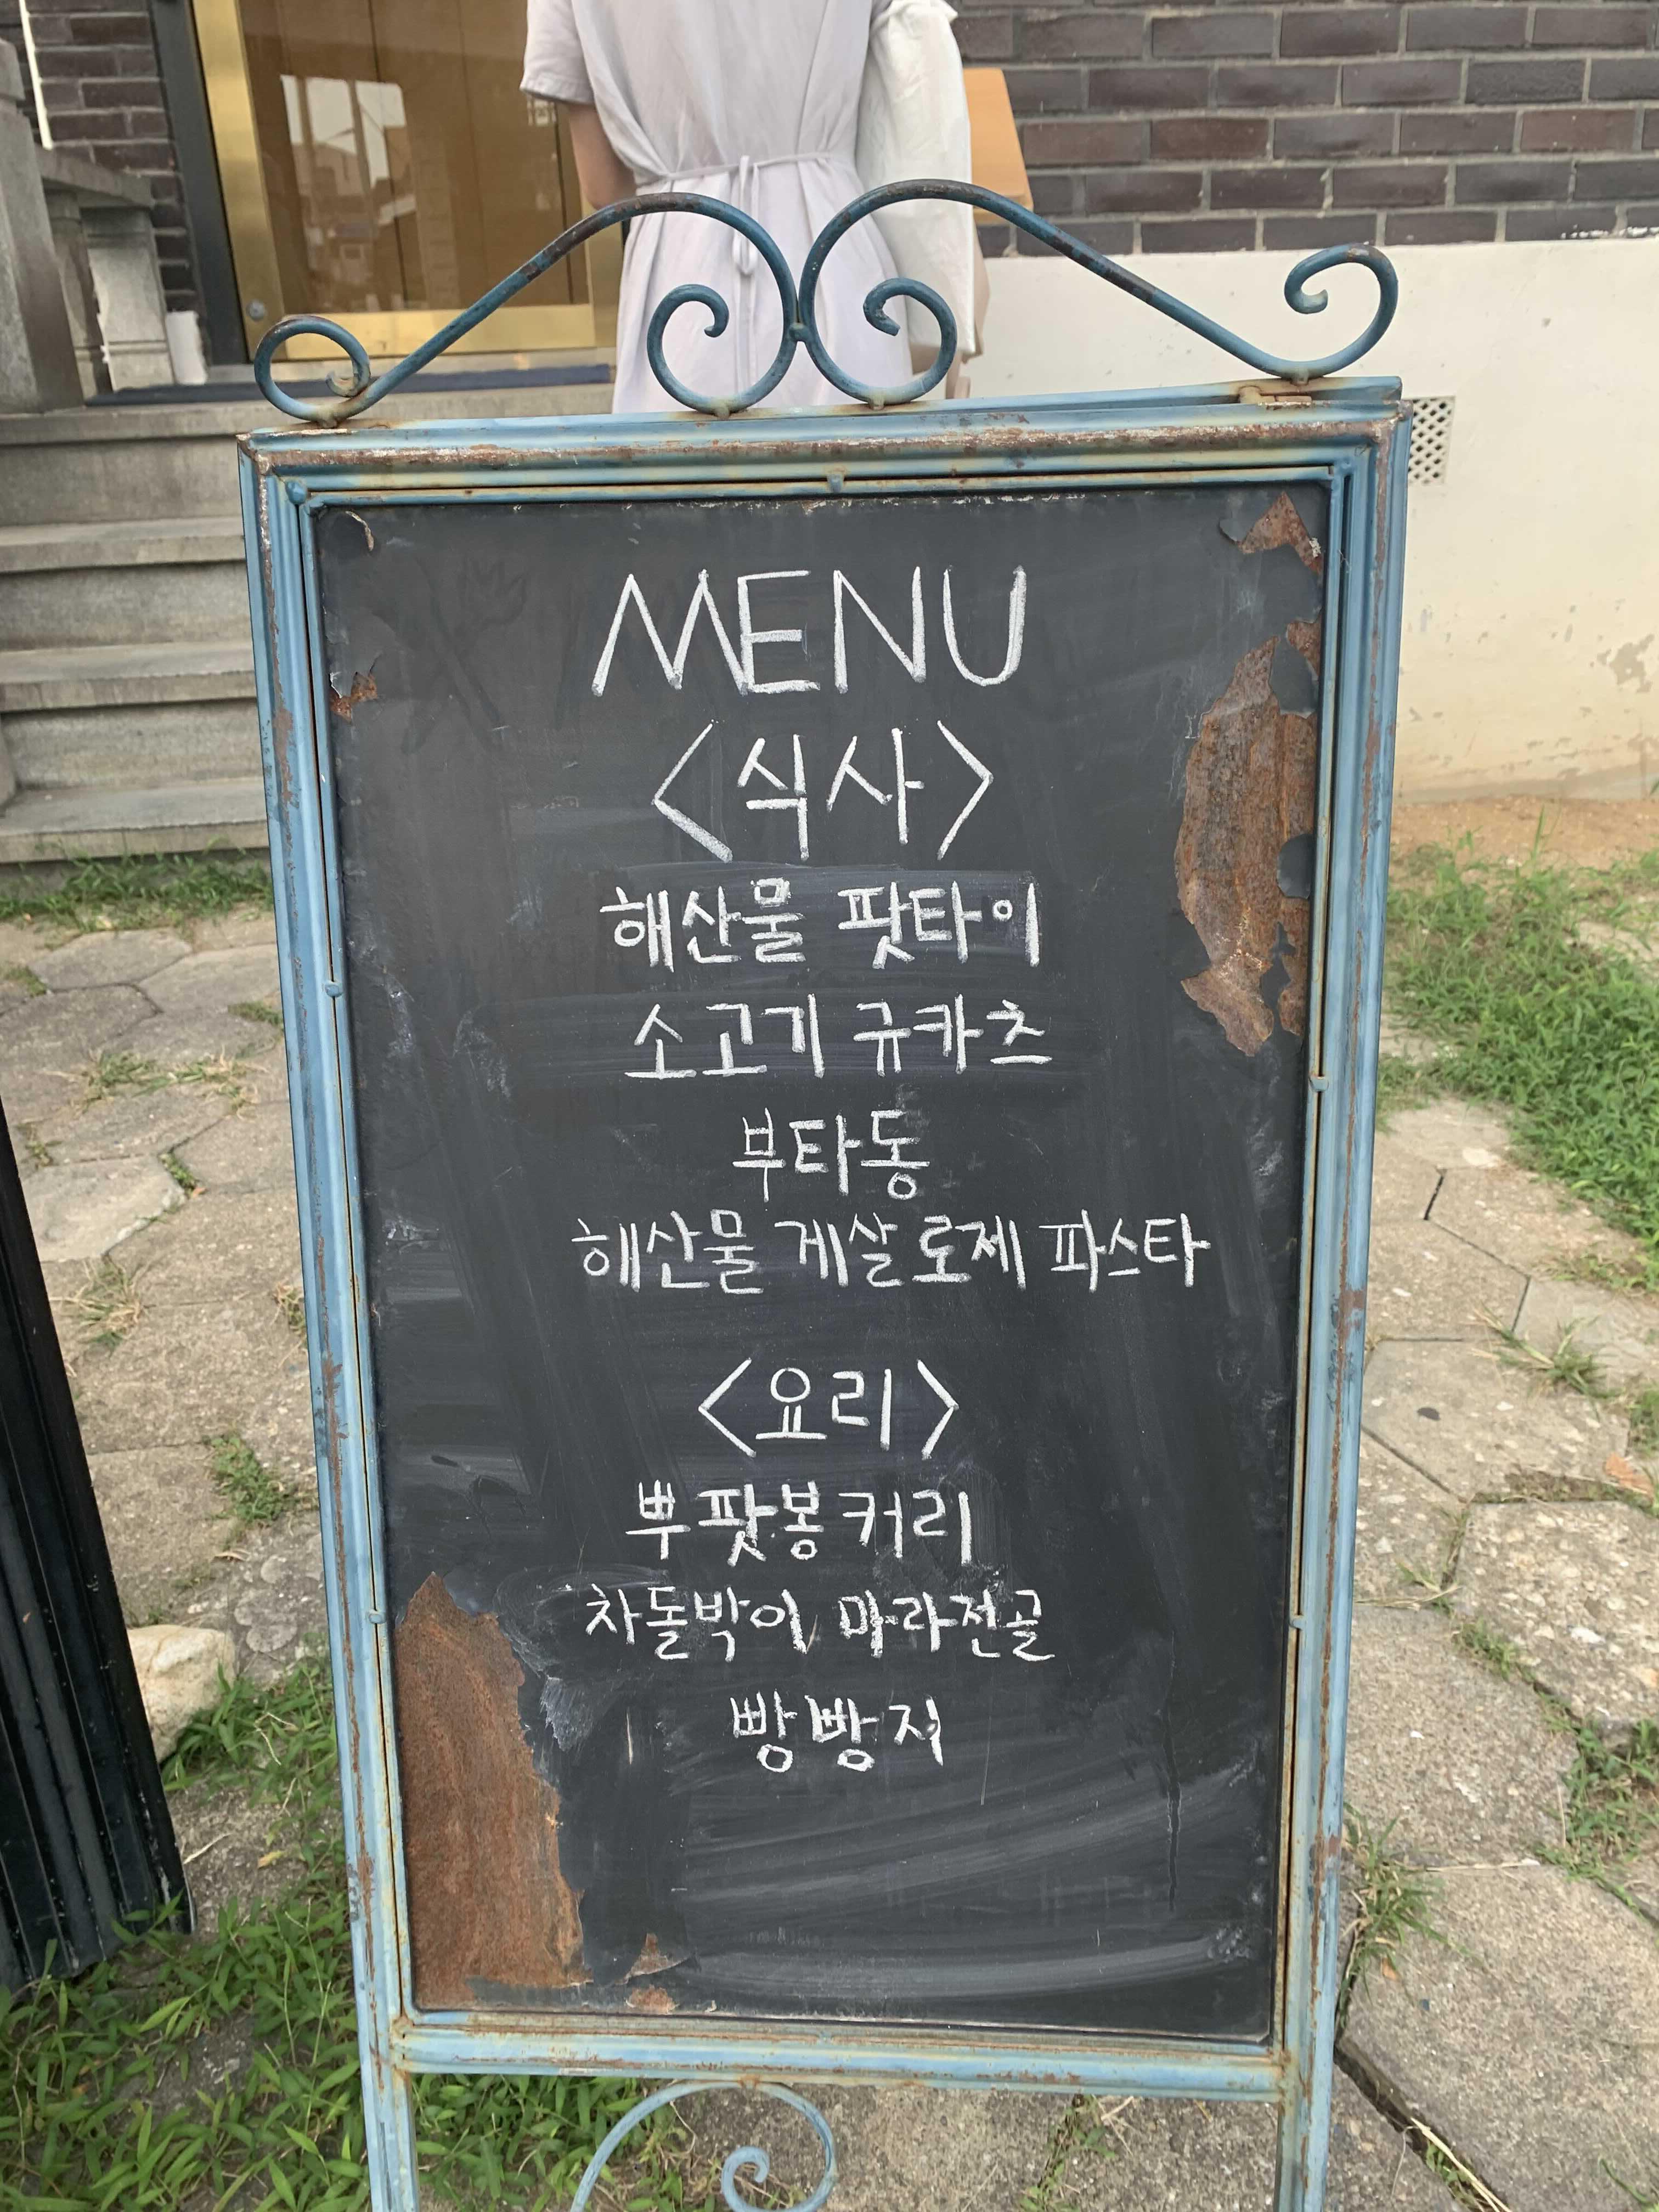 MENU
<식사>
해산물 팟타이
소고기 규카츠
부타동
해산물 게살 로제 파스타
<요리>
뿌팟봉커리
차돌박이 마라전골
빵빵지